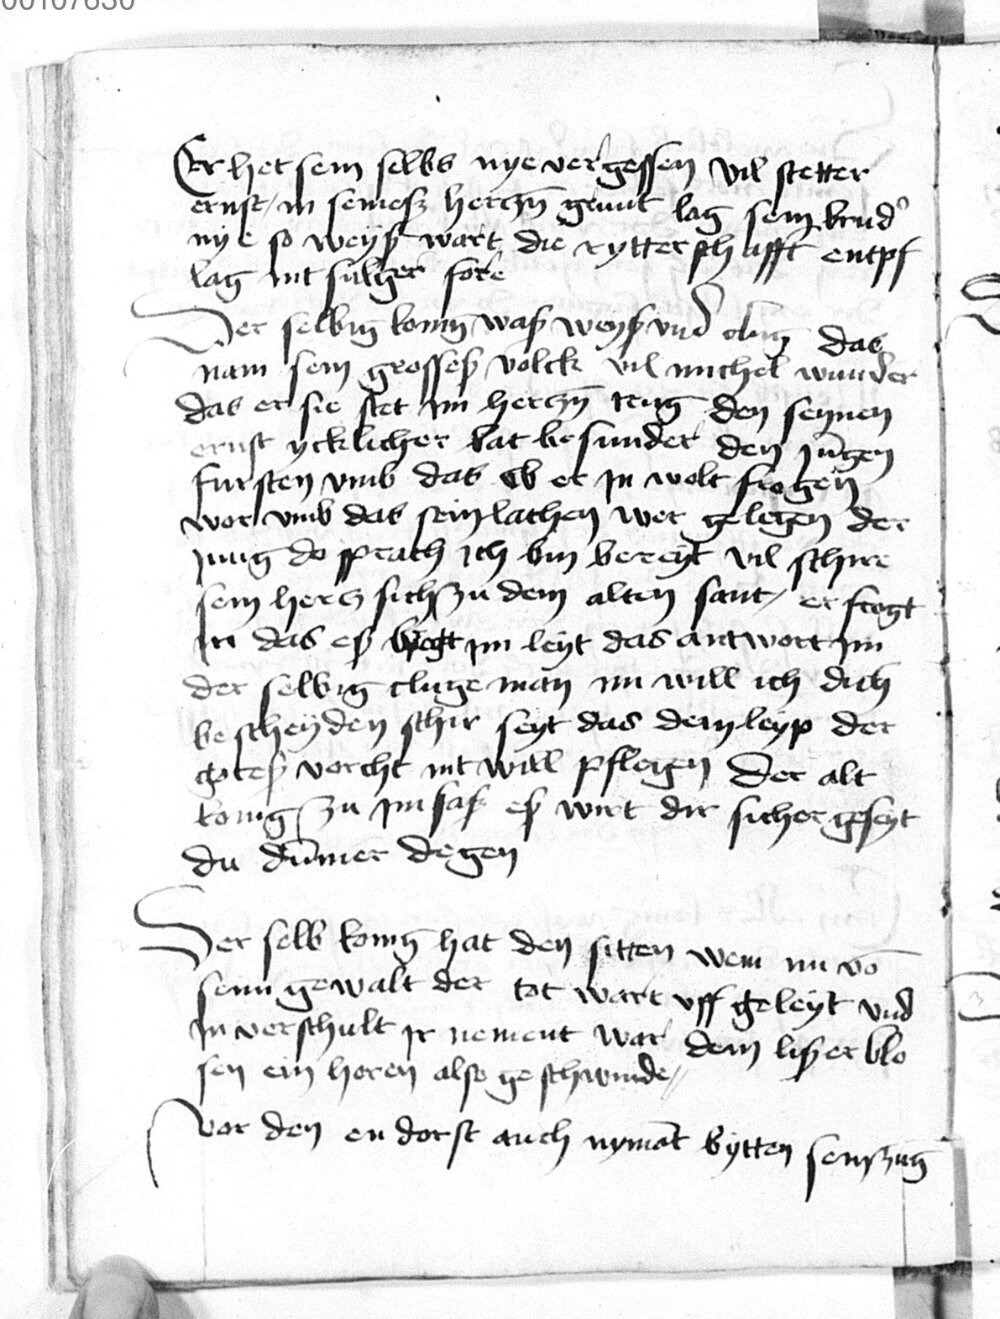 00107630
Er het sein selbs nye vergessen vil stetter
ernst / in seinesz herczn̄ grunt lag sein brud᷑
nye so weysz wart die rytterschafft entpf
lag mit sulger fore
Der selbig konig wasz weysz vnd clug das
nam sein grossesz volck vil michel wunder
das er sie stet im herczn̄ trug den seynen
ernst ycklicher bat besunder den jungen
fursten vmb das ob er in wolt frogen
wor vmb das sein lachen wer gelegen der
jung do sprach ich bin bereyt vil schire
sein hercz sich zu dem alten fant / er frogt
in das esz gott im leyt das antwort im
der selbig cluge man nu will ich dich
bescheyden schir seyt das dein leyp der
gotesz vorcht nit will pflegen der alt
konig zu im sasz esz wirt dir sicher geseyt
du dum̄er degen
Der selb konig hat den sitten wem nu vō
seim gewalt der tot wart vff geleyt vnd
in verschult ir nement war dem lisz er blo
sen ein horen also geschwinde //
Vor den en dorst auch nymāt bytten sein zūg